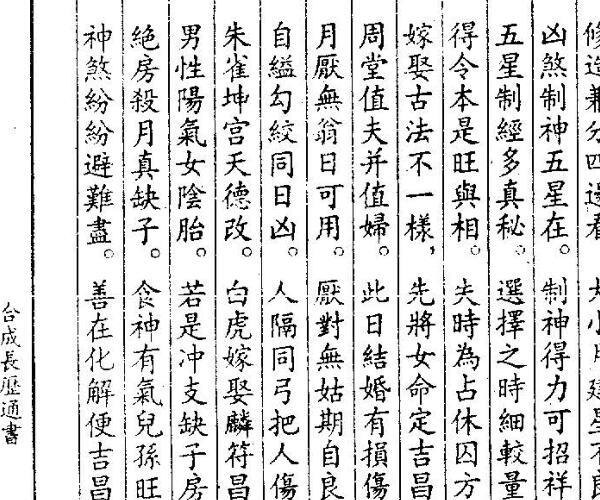 修造兼分四邊看 大小月建星
凶煞制神五星在。制神得力可招祥
五星制經多真秘。選擇之時細較量
得令本是旺與相。夫時為占休囚方
嫁娶古法不一樣，先將女命定吉昌
周堂值夫并值婦。此日結婚有損傷
月厭無翁日可用。厭對無姑期自良
自縊勾絞同日凶。人隔同弓把人傷
朱雀坤宮天德改。白虎嫁娶麟符昌
男性陽氣女陰胎。若是冲支缺子房
絕房殺月真缺子。食神有氣兒孫旺
神煞紛紛避難盡。善在化解便吉昌
合成長歷通書